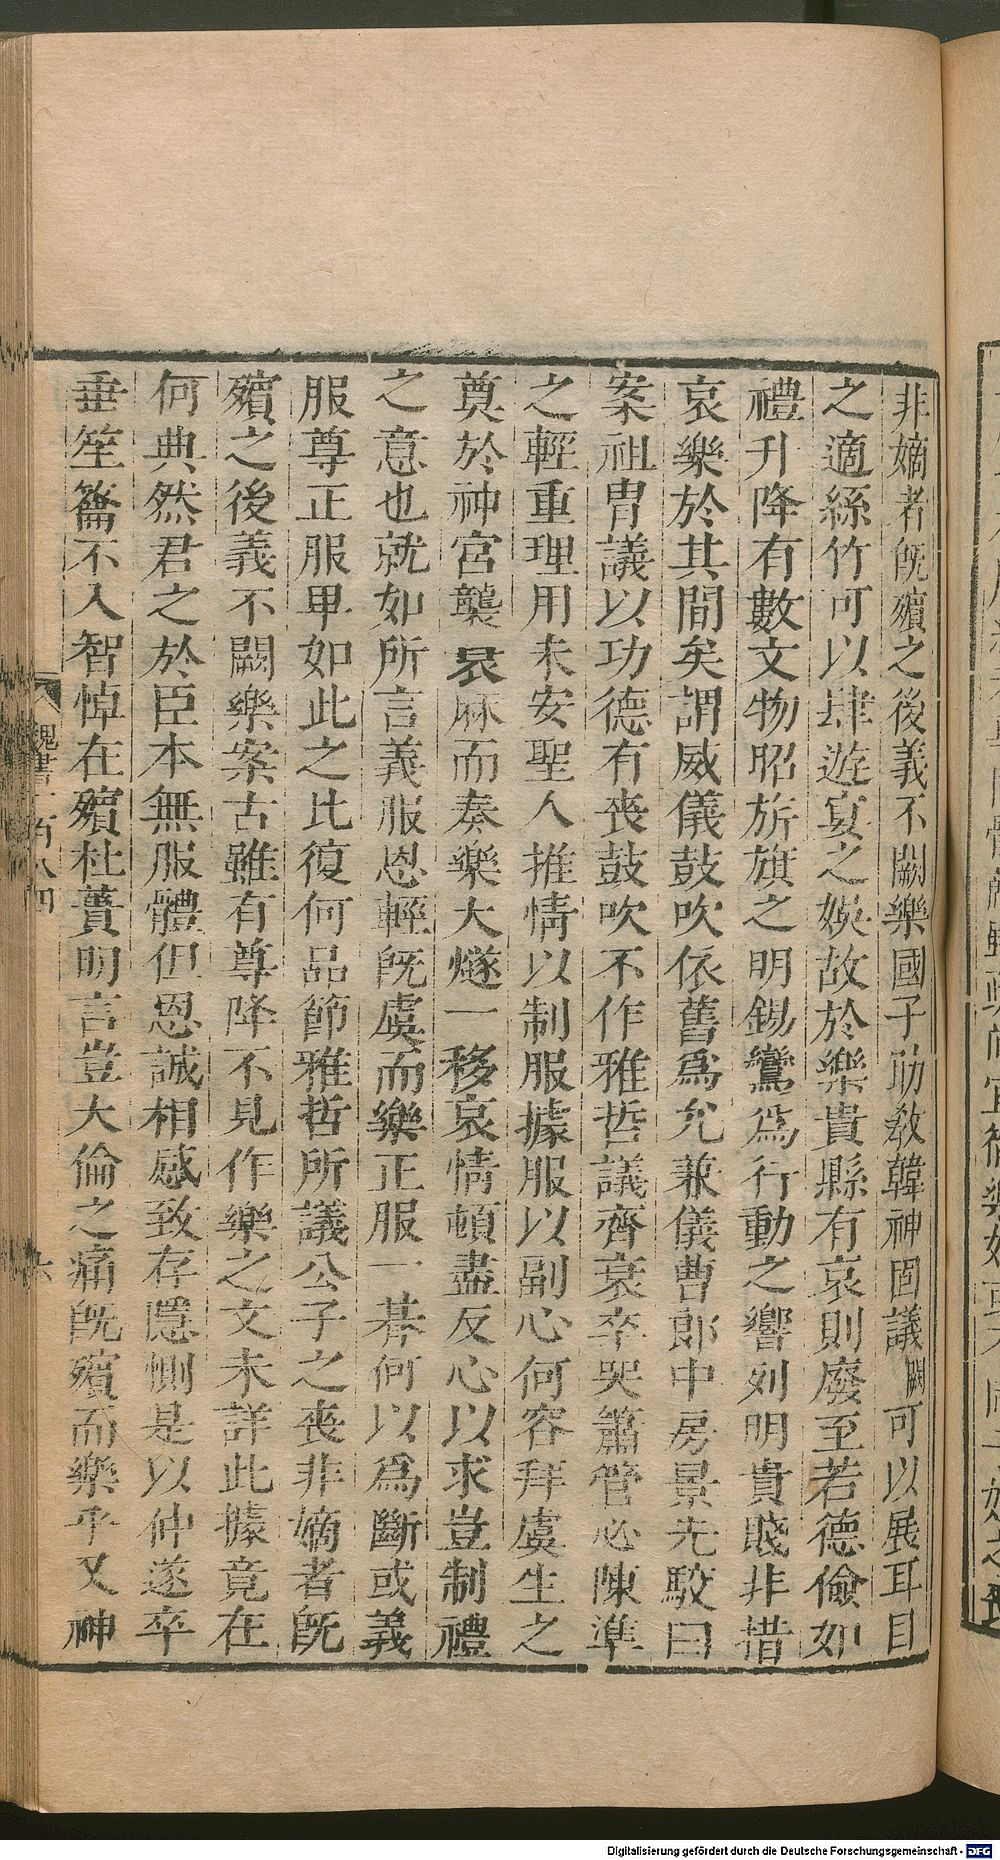 非嫡者旣殯之後義不闕樂國子助敎韓神固議闕可以展耳目
之適絲竹可以肆遊宴之娛故於樂貴縣有哀則廢至若德儉如
禮升降有數文物昭旂旗之明錫鸞爲行動之響列明貴賤非措
哀樂於其間矣謂威儀鼓吹依舊爲允兼儀曹郎中房景先駮曰
案祖冑議以功德有喪鼓吹不作雅哲議齊衰卒哭簫管必陳準
之輕重理用未安聖人推情以制服據服以副心何容拜虞生之
奠於神宮襲衰麻而奏樂大燧一移哀情頓盡反心以求豈制禮
之意也就如所言義服恩輕旣虞而樂正服一朞何以爲斷或義
服尊正服卑如此之比復何品節雅哲所議公子之喪非嫡者旣
殯之後義不闕樂案古雖有尊降不見作樂之文未詳此據竟在
何典然君之於臣本無服體但恩誠相感致存隱惻是以仲遂卒
垂笙籥不入智悼在殯杜蕢明言豈大倫之痛旣殯而樂乎又神
魏書一百八四
六
Digitalisierung gefördert durch die Deutsche Forschungsgemeinschaft - DFG